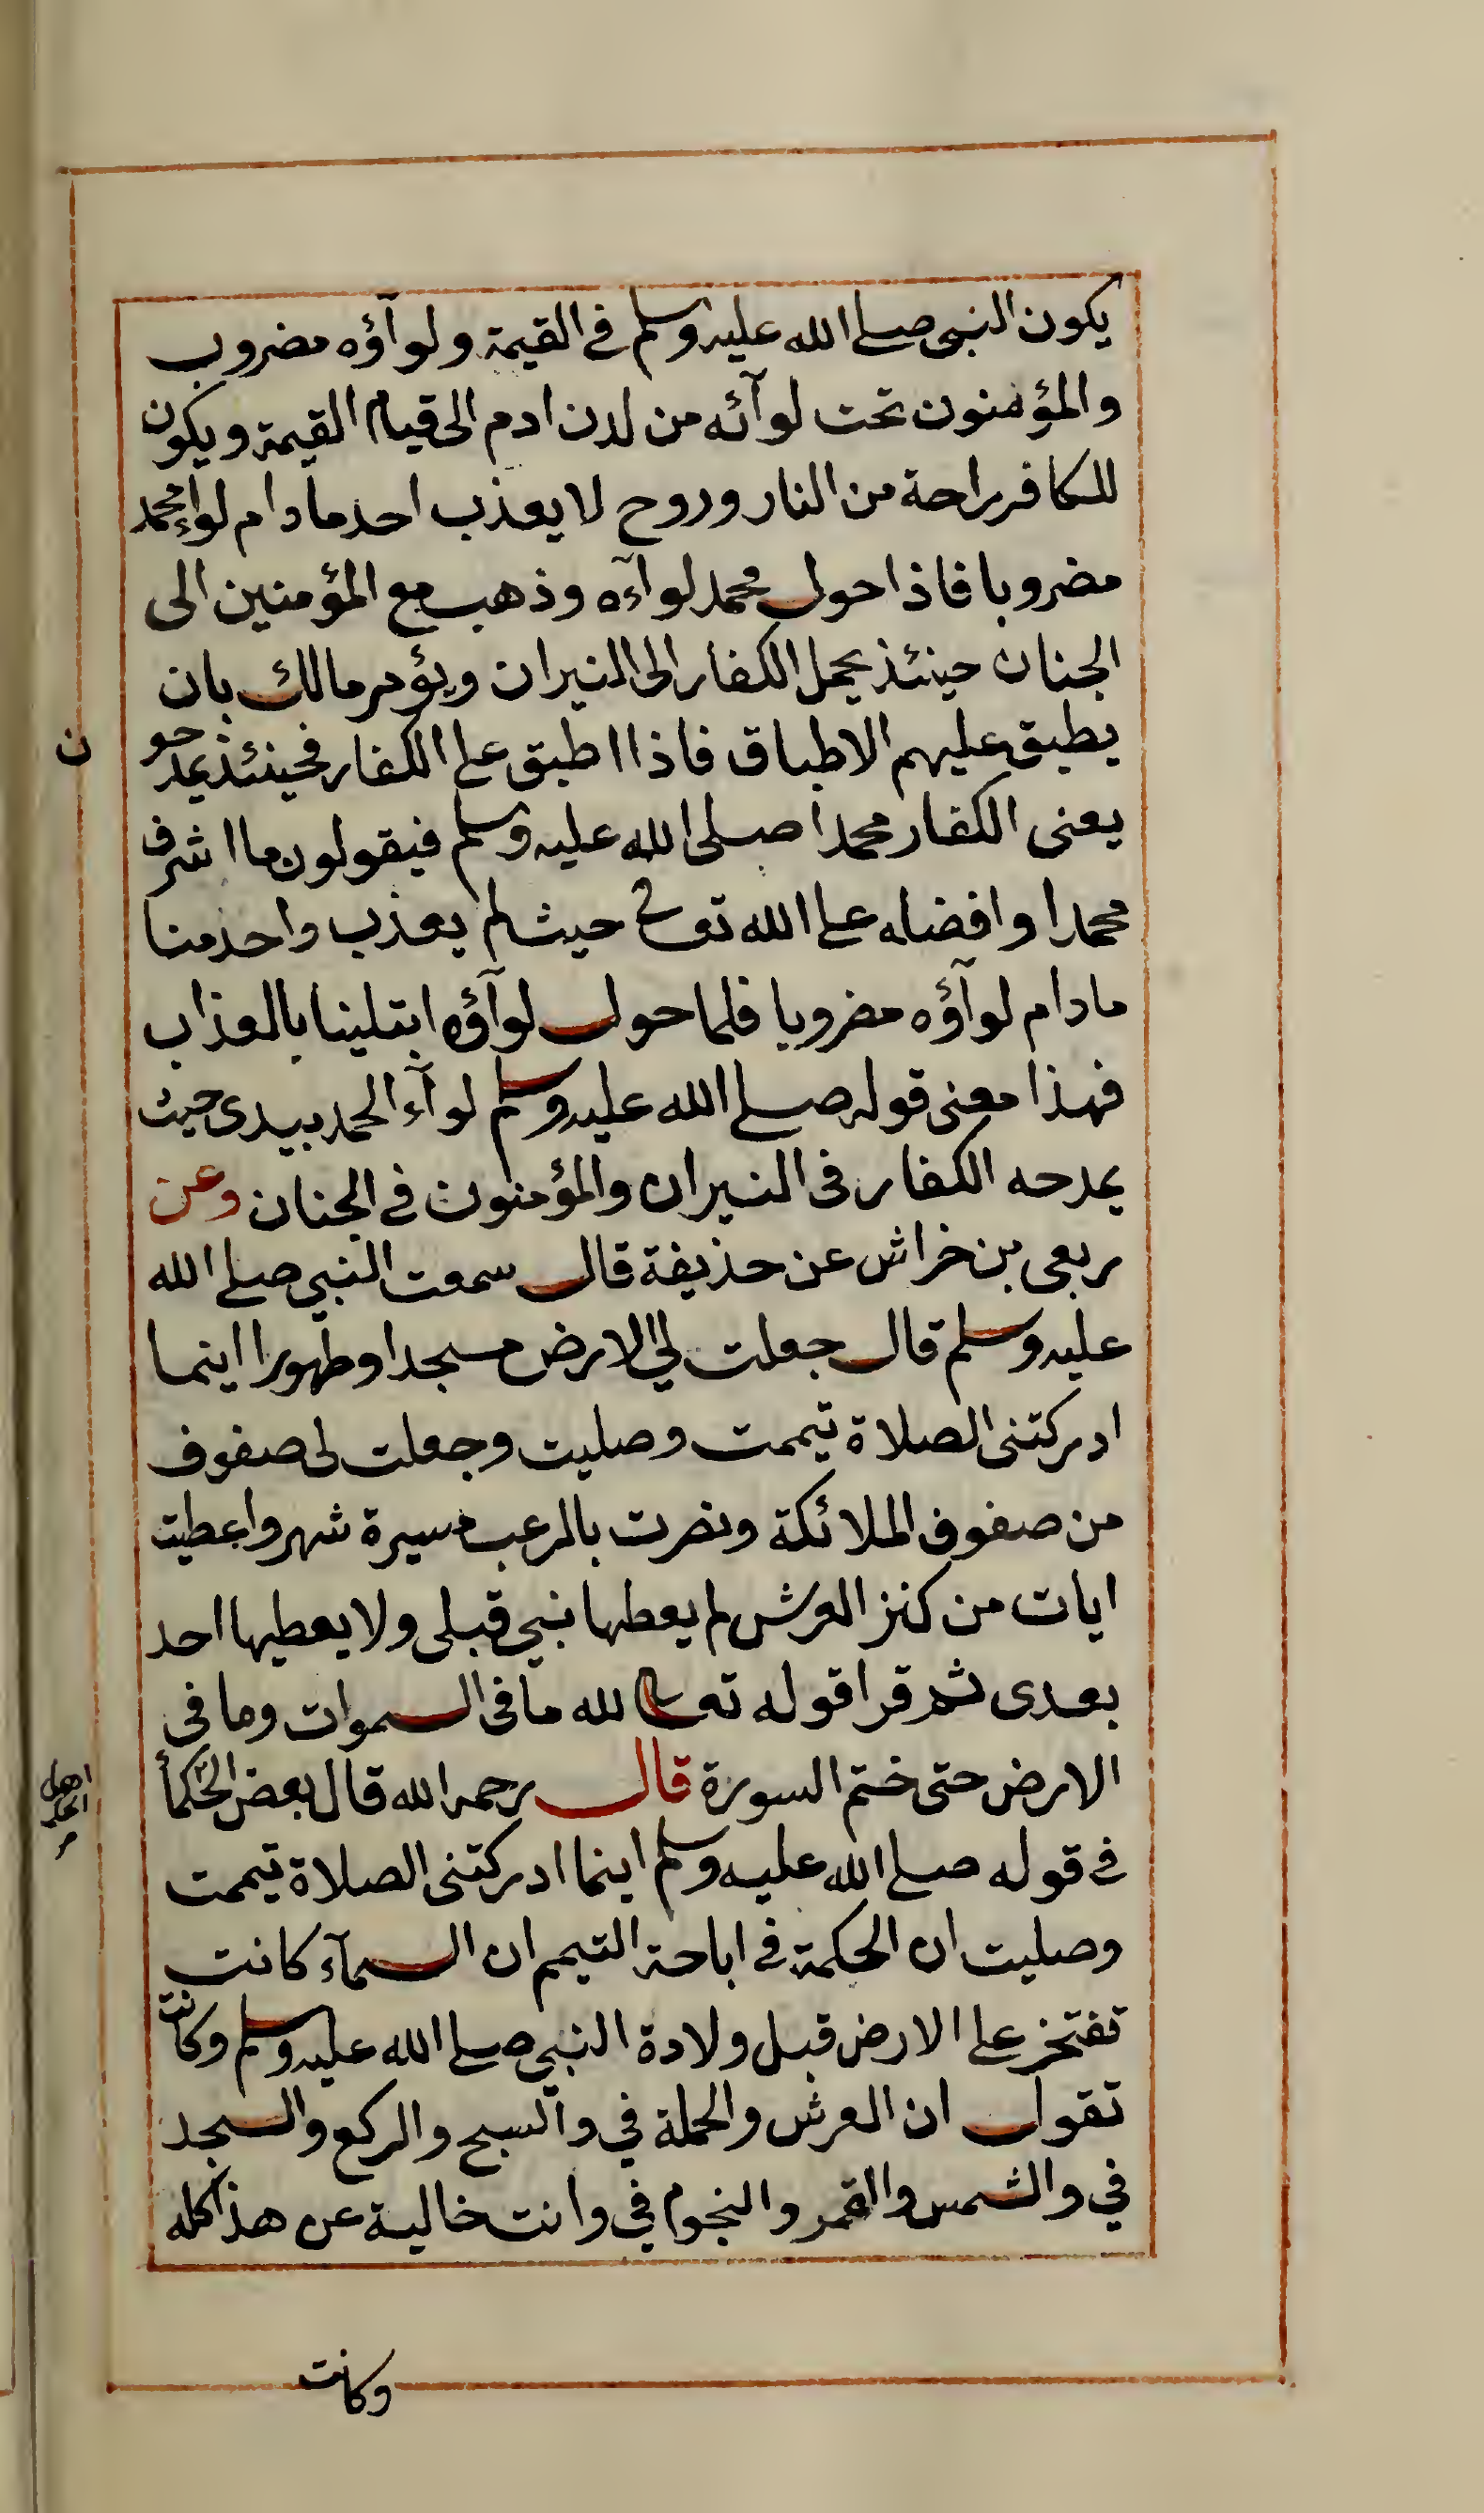 يكون النبي صلى الله عليه وسلم في القيمة ولوآؤه مضروب
والمؤمنون تحت لوآئه من لدن ادم الى قيام القيمة ويكون
للكافر راحة من النار وروح لا يعذب احد مادام لواء محمد
مضروبا فاذا حول محمد لوآءه وذهب مع المؤمنين الى
الجنان حينئذ يحمل الكفار الى النيران ويؤمر مالك بان
يطبق عليهم الاطباق فاذا اطبق على الكفار فحينئذ يمدحو
ن
يعنى الكفار محمدا صلى الله عليه وسلم فيقولون ما اشرف
محمدا وافضله على الله تعالى حيث لم يعذب واحد منا
مادام لوآؤه مضروبا فلما حول لوآؤه ابتلينا بالعذاب
فهذا معنى قوله صلى الله عليه وسلم لوآء الحمد بيدى حيث
يمدحه الكفار فى النيران والمؤمنون في الجنان وعن
ربعى بن خراش عن حذيفة قال سمعت النبي صلى الله
عليه وسلم قال جعلت لي الارض مسجدا وطهورا اينما
ادركتنى الصلاة تيممت وصليت وجعلت لى صفوف
من صفوف الملائكة ونصرت بالرعب مسيرة شهر واعطيت
ايات من كنز العرش لم يعطها نبي قبلى ولا يعطيها احد
بعدى ثم قرا قوله تعالى لله ما فى السموات وما فى
الارض حتى ختم السورة قال رحمه الله قال بعض الحكمأ
في قوله صلى الله عليه وسلم اينما ادركتنى الصلاة تيممت
وصليت ان الحكمة في اباحة التيمم ان السمآء كانت
تفتخر على الارض قبل ولادة النبي صلى الله عليه وسلم وكانت
تقول ان العرش والحملة في والسبح والركع والسجد
في والشمس والقمر والنجوم في وانت خالية عن هذا كله
وكانت